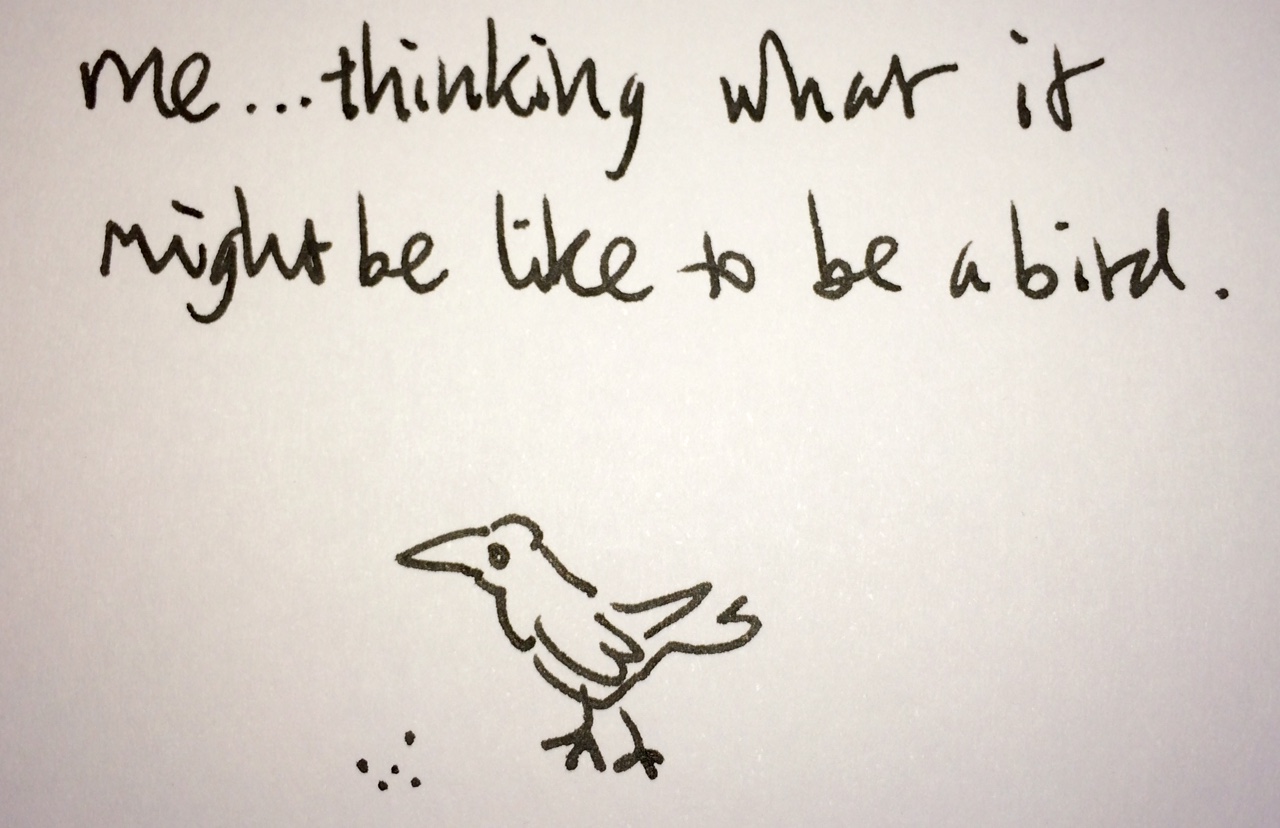 me...thinking what it
might be like to be a bird.